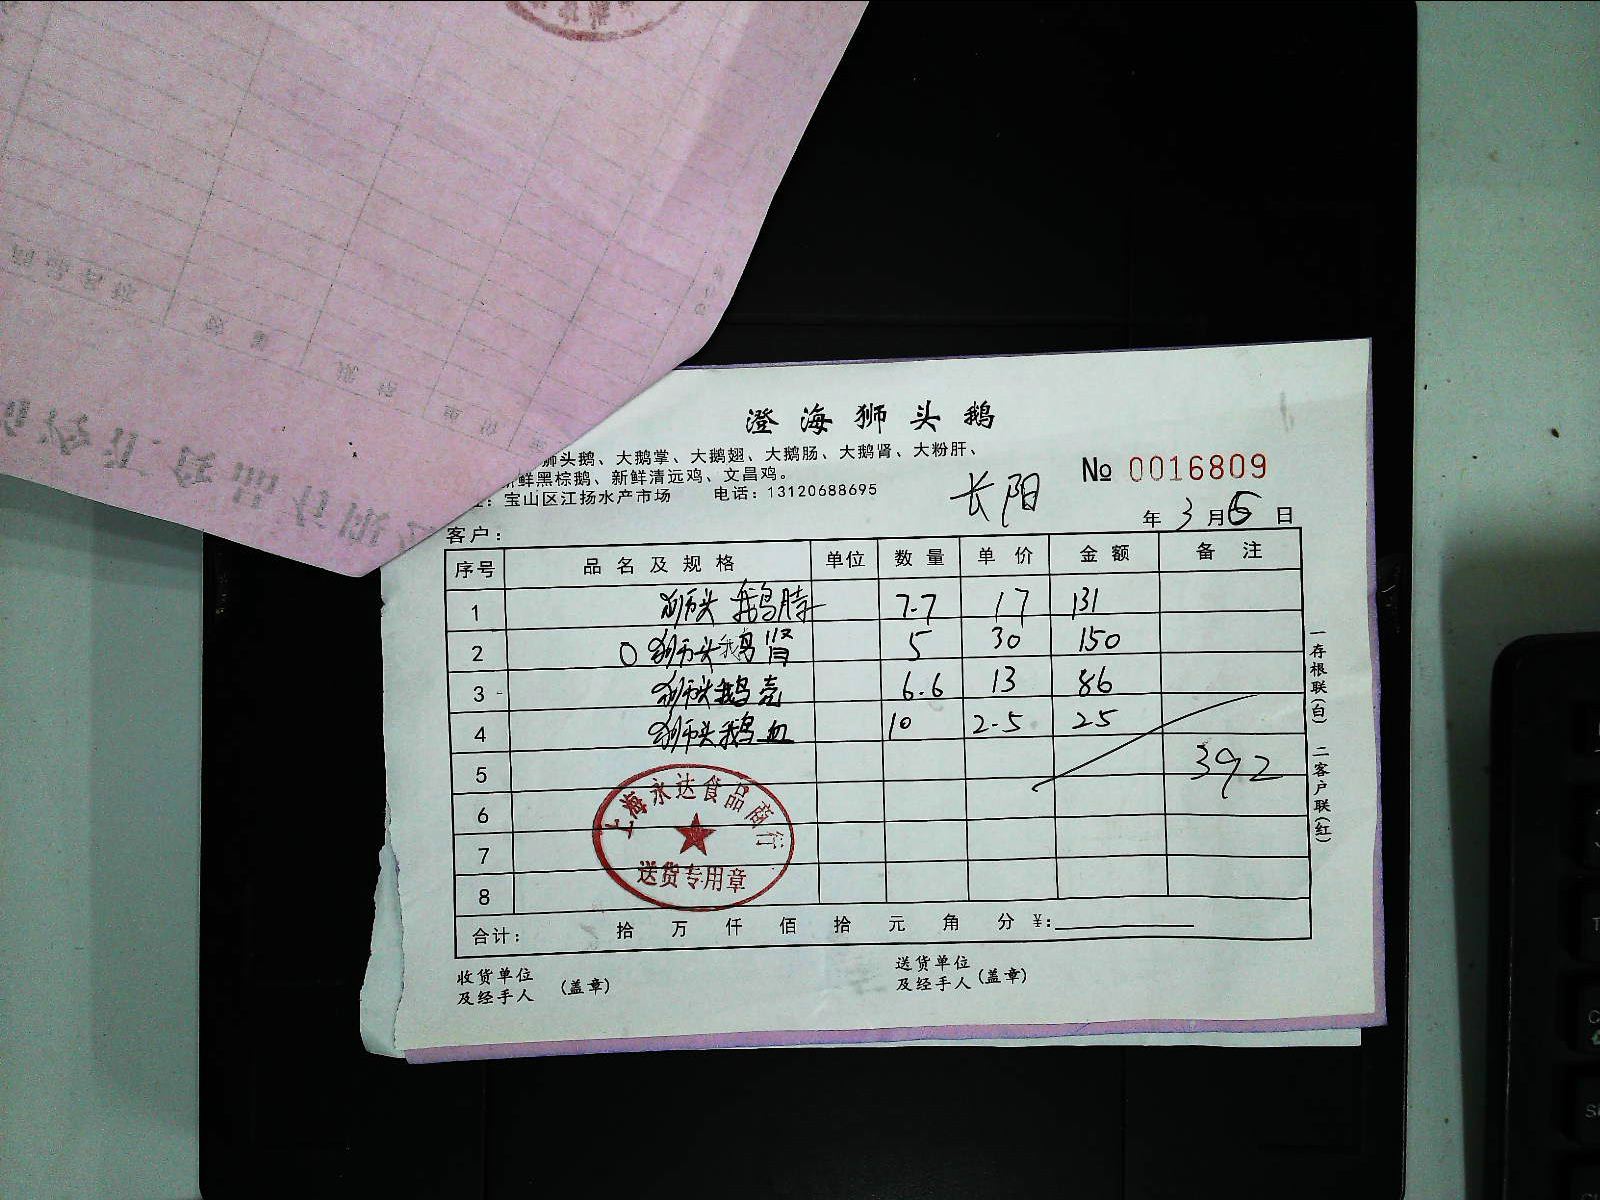 澄海狮头鹅
狮头鹅、大鹅掌、大鹅翅、大鹅肠、大鹅肾、大粉肝、
新鲜黑棕鹅、新鲜清远鸡、文昌鸡。
宝山区江扬水产市场 电话：13120688695
长阳
№ 0016809
年 3 月 6 日
客户：
序号 品名及规格 单位 数量 单价 金额 备注
1 狮头鹅胗 7.7 17 131
2 狮头鹅肾 5 30 150
3 狮头鹅壳 6.6 13 86
4 狮头鹅血 10 2.5 25
5 392
6
7
8
上海永达食品商行
送货专用章
合计： 拾 万 仟 佰 拾 元 角 分 ¥：
收货单位
及经手人 （盖章）
送货单位
及经手人（盖章）
一存根联（白） 二客户联（红）